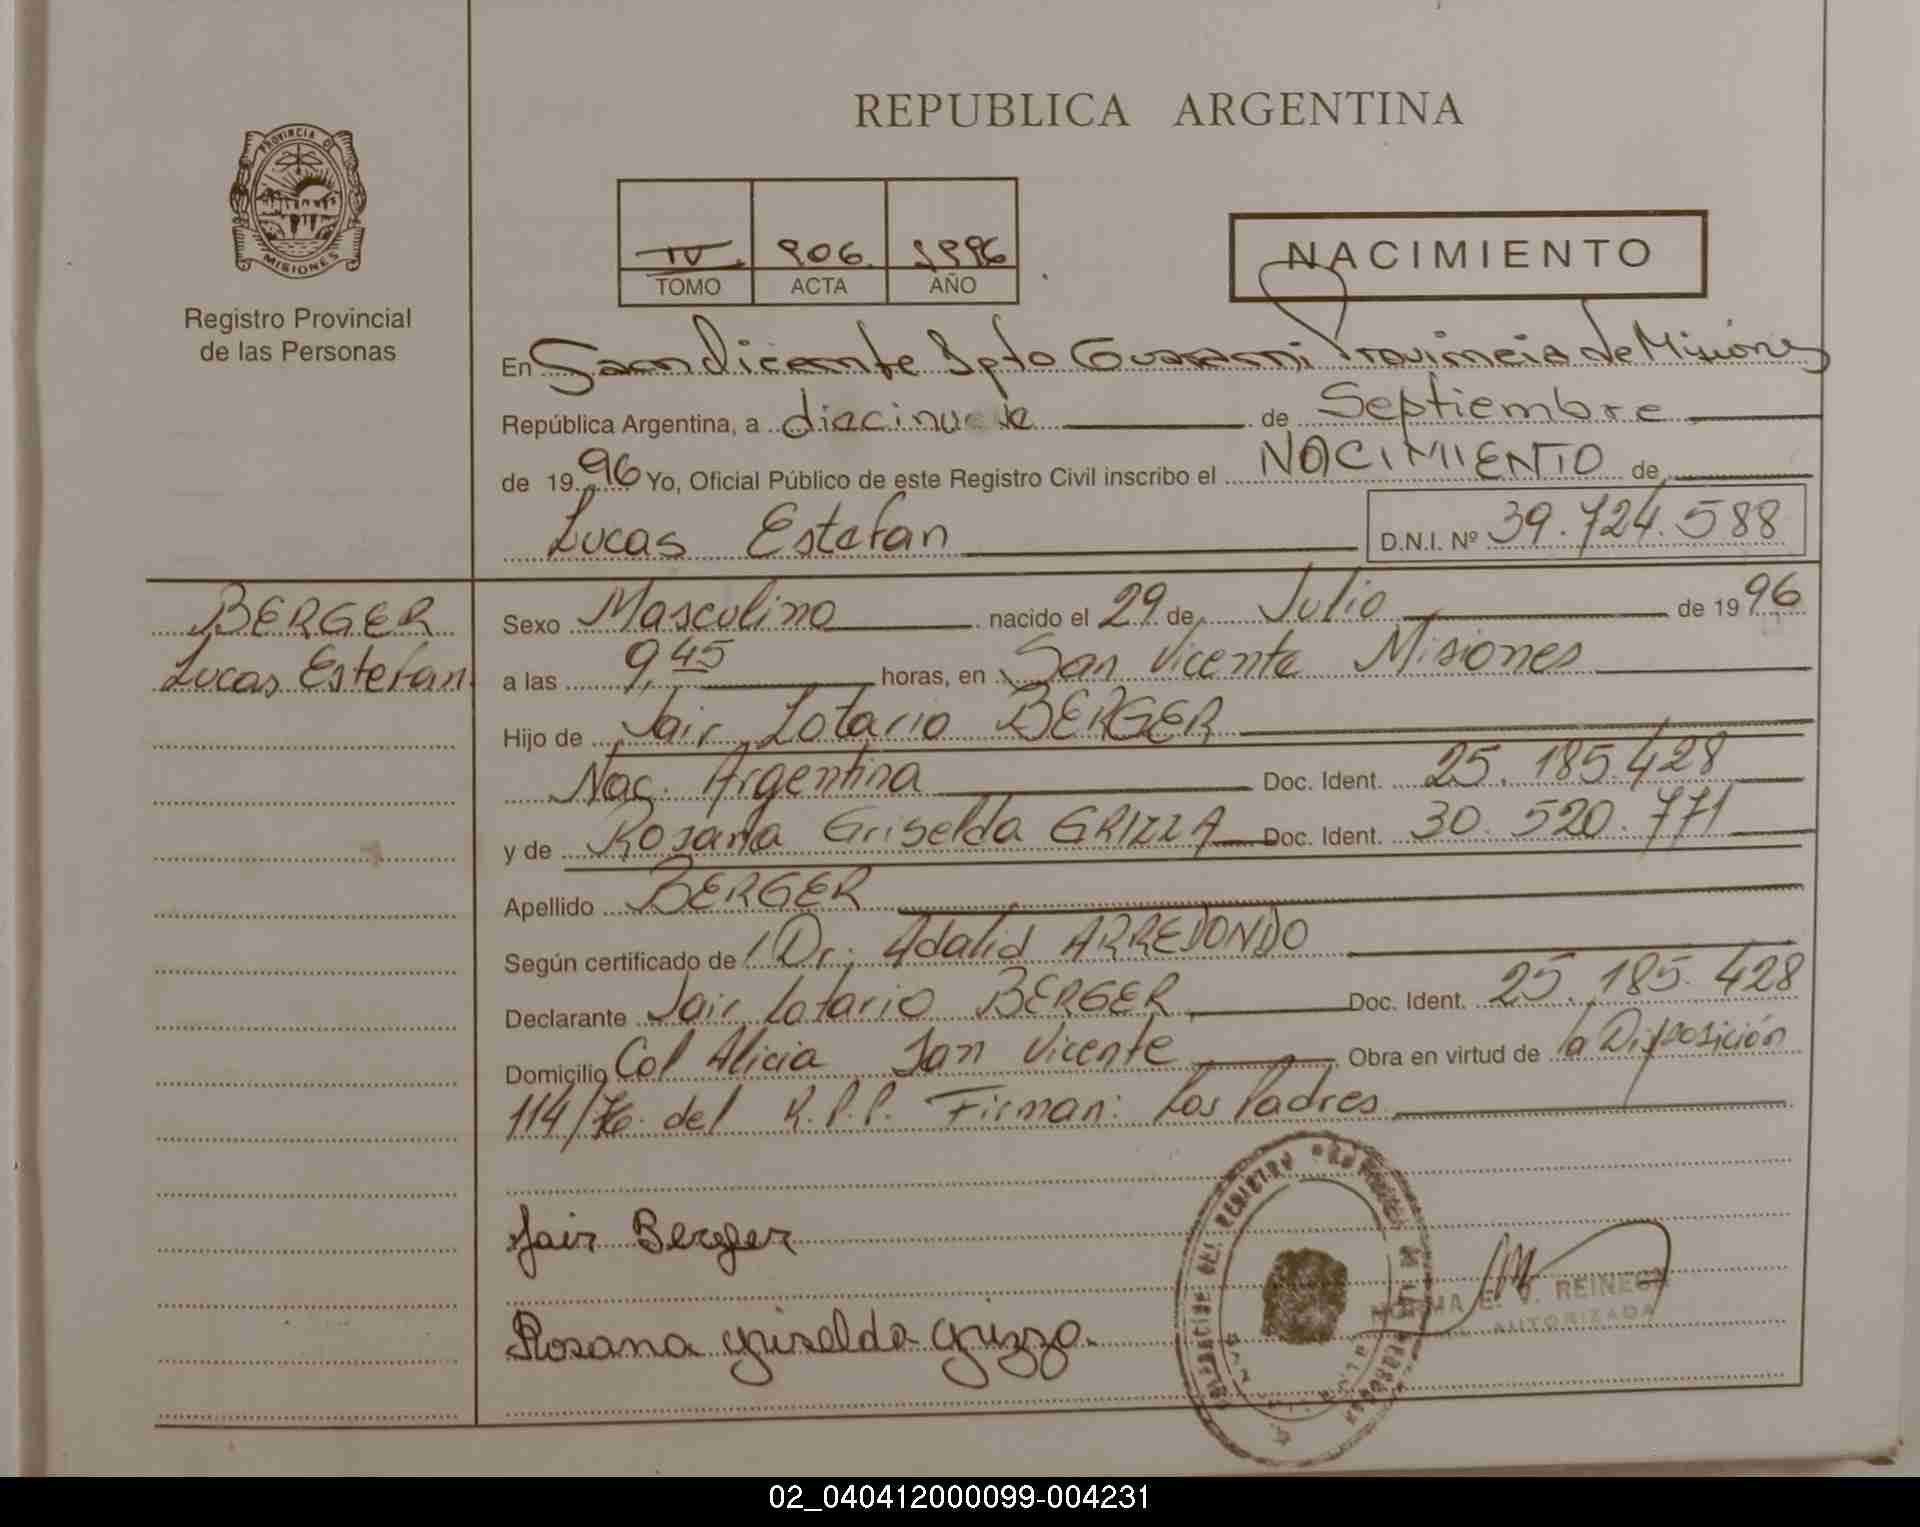 REPUBLICA ARGENTINA
PROVINCIA DE
MISIONES
Registro Provincial
de las Personas
IV 906 1996
TOMO ACTA AÑO
NACIMIENTO
En San Vicente Dpto Guarani Provincia de Misiones
República Argentina, a diecinueve de Septiembre
de 1996 Yo, Oficial Público de este Registro Civil inscribo el NACIMIENTO de
Lucas Estefan D.N.I. Nº 39.724.588
BERGER
Lucas Estefan
Sexo Masculino nacido el 29 de Julio de 1996
a las 9,45 horas, en San Vicente Misiones
Hijo de Jair Lotario BERGER
Nac. Argentina Doc. Ident. 25.185.428
y de Rosana Griselda GRIZZA Doc. Ident. 30.520.771
Apellido BERGER
Según certificado de Dr. Adalid ARREDONDO
Declarante Jair Lotario BERGER Doc. Ident. 25.185.428
Domicilio Col Alicia San Vicente Obra en virtud de la Disposición
114/76 del R.P.P. Firman: Los Padres
Jair Berger
Rosana Griselda Grizzo
DEL REGISTRO
NORMA E. REINECK
AUTORIZADA
02_040412000099-004231